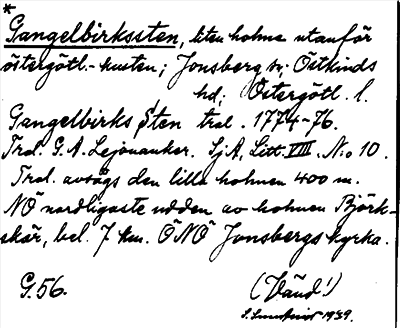 *
Gangelbirkssten, liten holme utanför
östergötl.-kusten; Jonsberg sn; Östkinds
hd; Östergötl. l.
Gangelbirks Sten trol. 1774-76.
Trol. G. A. Lejonanker. SjA, Litt. VIII. N:o 10.
Trol. avsågs den lilla holmen 400 m.
NÖ nordligaste udden av holmen Björk-
skär, bel. 7 km. ÖNÖ Jonsbergs kyrka.
G. 56. (Vänd!)
1939.